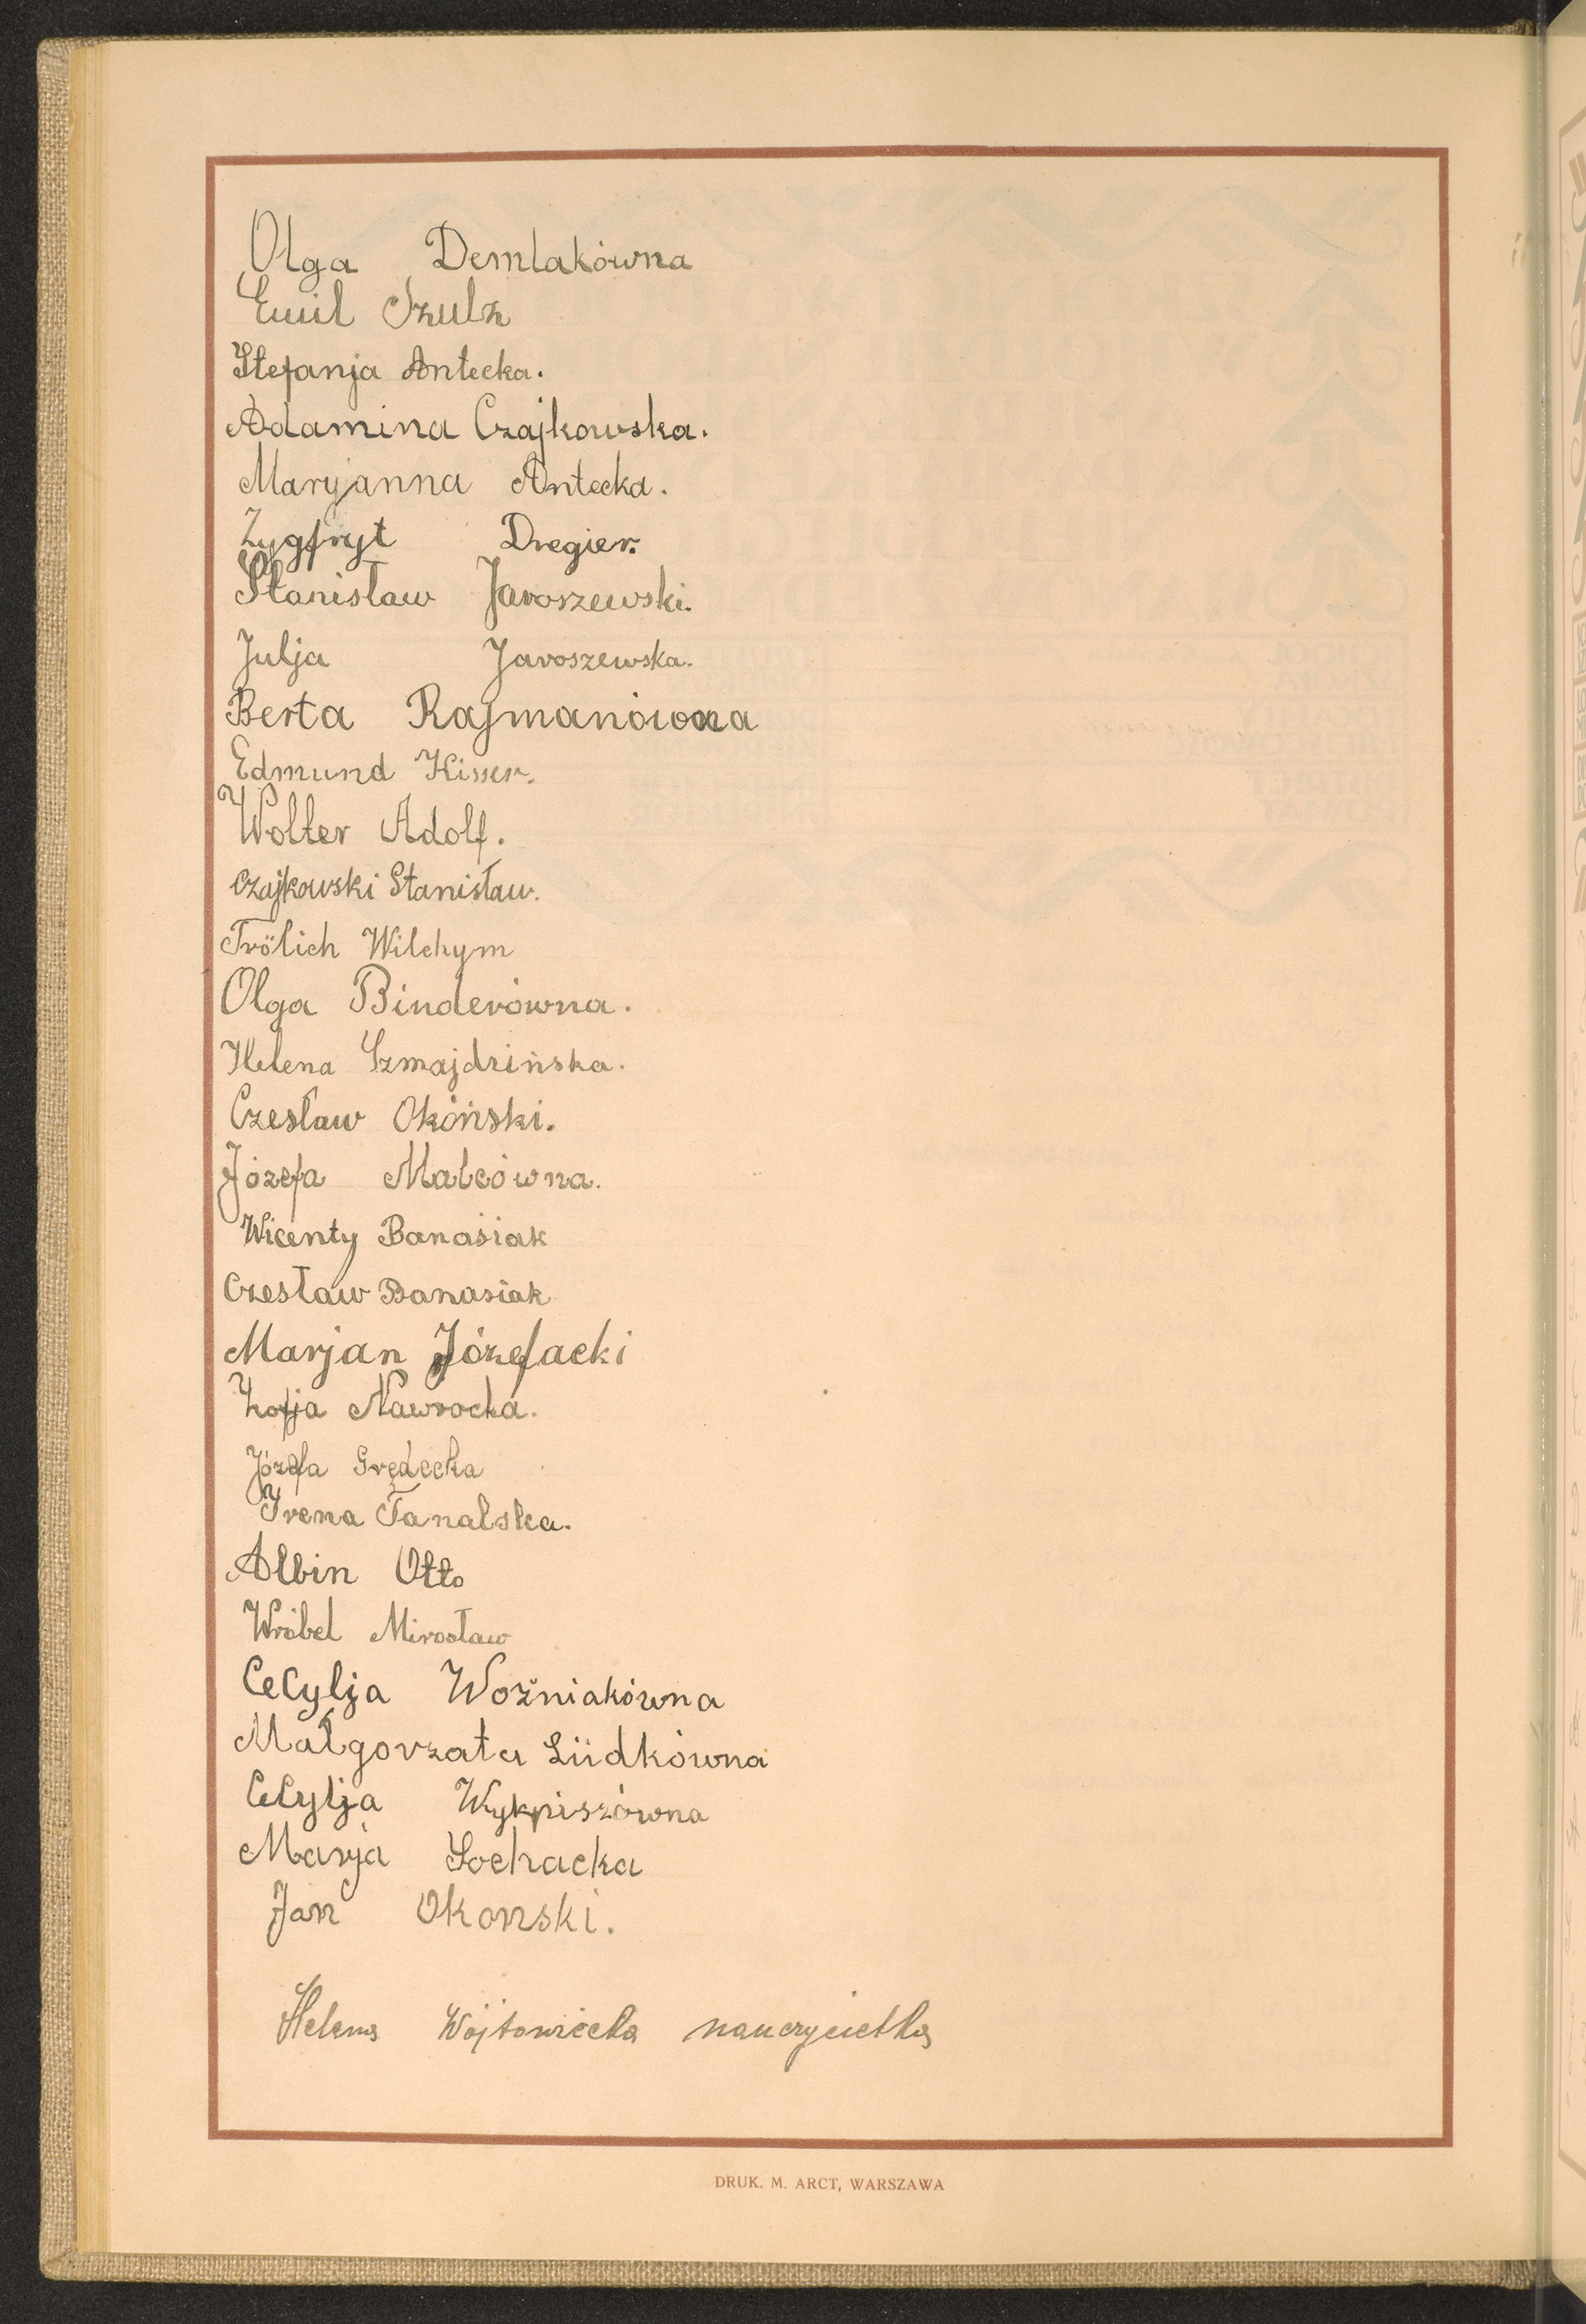 Olga Demlakówna
Emil Szulz
Stefanja Antecka.
Adamina Czajkowska.
Maryjanna Antecka.
Zygfryt Dregier.
Stanisław Jaroszewski.
Julja Jaroszewska.
Berta Rajmanówna
Edmund Kisser.
Wolter Adolf.
Czajkowski Stanisław.
Frölich Wilchym
Olga Binderówna.
Helena Szmajdzińska.
Czesław Okóński.
Józefa Malcówna.
Wicenty Banasiak
Czesław Banasiak
Marjan Józefacki
Zofja Nawrocka.
Józefa Grędecka
Irena Fanalska.
Albin Otto
Wróbel Mirosław
Cecylja Woźniakówna
Małgorzata Lüdkówna
Cecylja Wykpiszówna
Marja Sochacka
Jan Okonski.
Helena Wójtowiecka nauczycielka
DRUK. M. ARCT, WARSZAWA